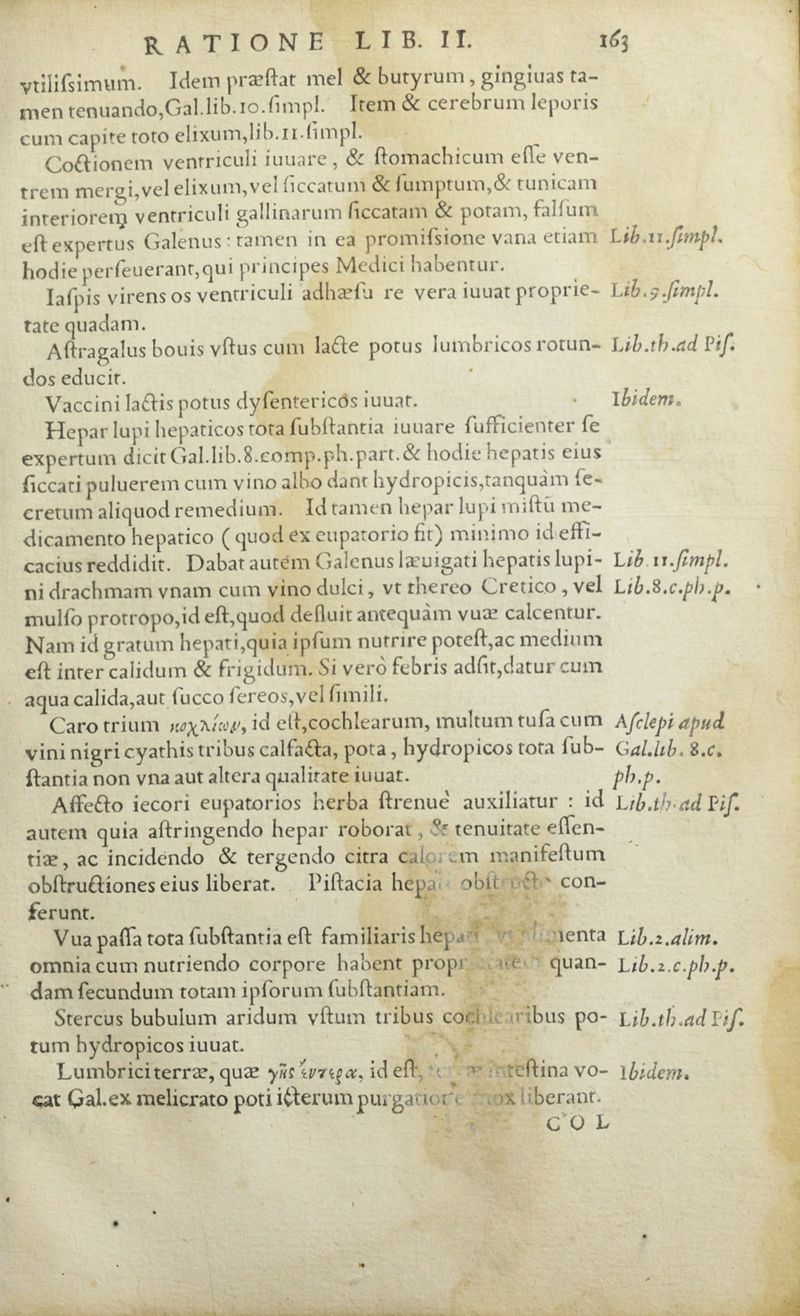 RATIONE LIB. II. 163
vtiliſsimum. Idem præſtat mel & butyrum, gingiuas ta-
men tenuando,Gal.lib.10.ſimpl. Item & cerebrum leporis
cum capite toto elixum,lib.11.ſimpl.
Coctionem ventriculi iuuare, & ſtomachicum eſſe ven-
trem mergi,vel elixum,vel ſiccatum & ſumptum,& tunicam
interiorem ventriculi gallinarum ſiccatam & potam, falſum
eſt expertus Galenus: tamen in ea promiſsione vana etiam Lib.11.ſimpl.
hodie perſeuerant,qui principes Medici habentur.
Iaſpis virens os ventriculi adhæſu re vera iuuat proprie- Lib.9.ſimpl.
tate quadam.
Aſtragalus bouis vſtus cum lacte potus lumbricos rotun- Lib.th.ad Piſ.
dos educit.
Vaccini lactis potus dyſentericós iuuat. Ibidem.
Hepar lupi hepaticos tota ſubſtantia iuuare ſufficienter ſe
expertum dicit Gal.lib.8.comp.ph.part.& hodie hepatis eius
ſiccati puluerem cum vino albo dant hydropicis,tanquàm ſe-
cretum aliquod remedium. Id tamen hepar lupi miſtū me-
dicamento hepatico (quod ex eupatorio fit) minimo id effi-
cacius reddidit. Dabat autém Galenus læuigati hepatis lupi- Lib.11.ſimpl.
ni drachmam vnam cum vino dulci, vt thereo Cretico, vel Lib.8.c.ph.p.
mulſo protropo,id eſt,quod defluit antequàm vuæ calcentur.
Nam id gratum hepati,quia ipſum nutrire poteſt,ac medium
eſt inter calidum & frigidum. Si verò febris adſit,datur cum
aqua calida,aut ſucco ſereos,vel ſimili.
Caro trium κοχλίων, id eſt,cochlearum, multum tuſa cum Aſclepi apud
vini nigri cyathis tribus calfacta, pota, hydropicos tota ſub- Gal.lib.8.c.
ſtantia non vna aut altera qualitate iuuat. ph.p.
Affecto iecori eupatorios herba ſtrenuè auxiliatur : id Lib.th.ad Piſ.
autem quia aſtringendo hepar roborat, & tenuitate eſſen-
tiæ, ac incidendo & tergendo citra calorem manifeſtum
obſtructiones eius liberat. Piſtacia con-
ferunt.
Vua paſſa tota ſubſtantia eſt familiaris Lib.2.alim.
omnia cum nutriendo corpore habent quan- Lib.2.c.ph.p.
dam ſecundum totam ipſorum ſubſtantiam.
Stercus bubulum aridum vſtum tribus cochlearibus po- Lib.th.ad Piſ.
tum hydropicos iuuat.
Lumbrici terræ, quæ γῆς ἔντερα, id eſt, inteſtina vo- Ibidem.
cat Gal.ex melicrato poti icterum liberant.
COL